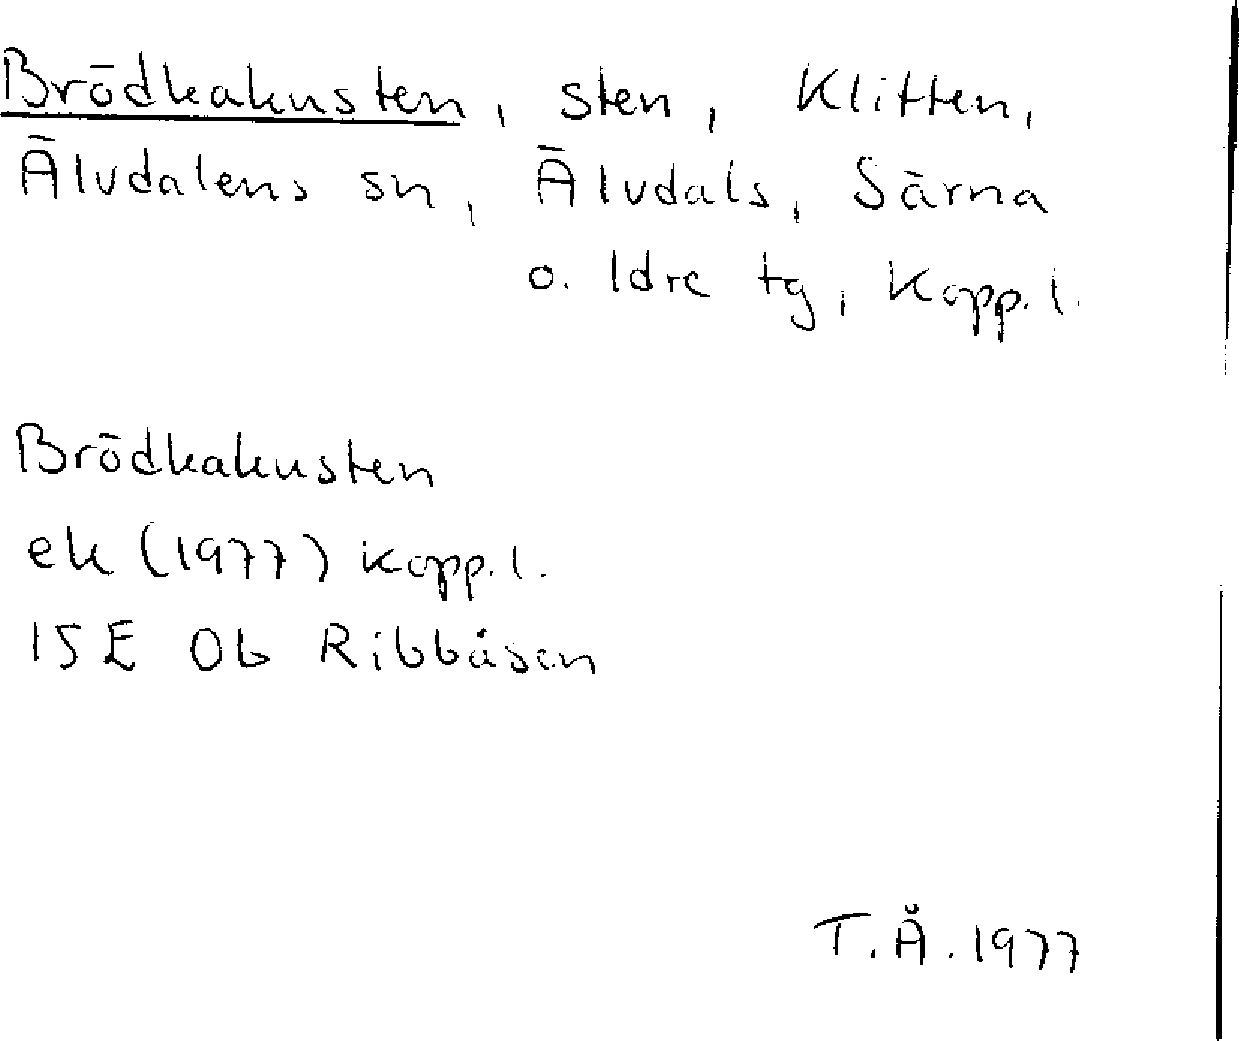 Brödkakusten, sten, Klitten,
Älvdalens sn, Älvdals, Särna
o. Idre tg, Kopp. l.
Brödkakusten
ek (1977) Kopp. l.
15E 0b Ribbåsen
T.Å. 1977